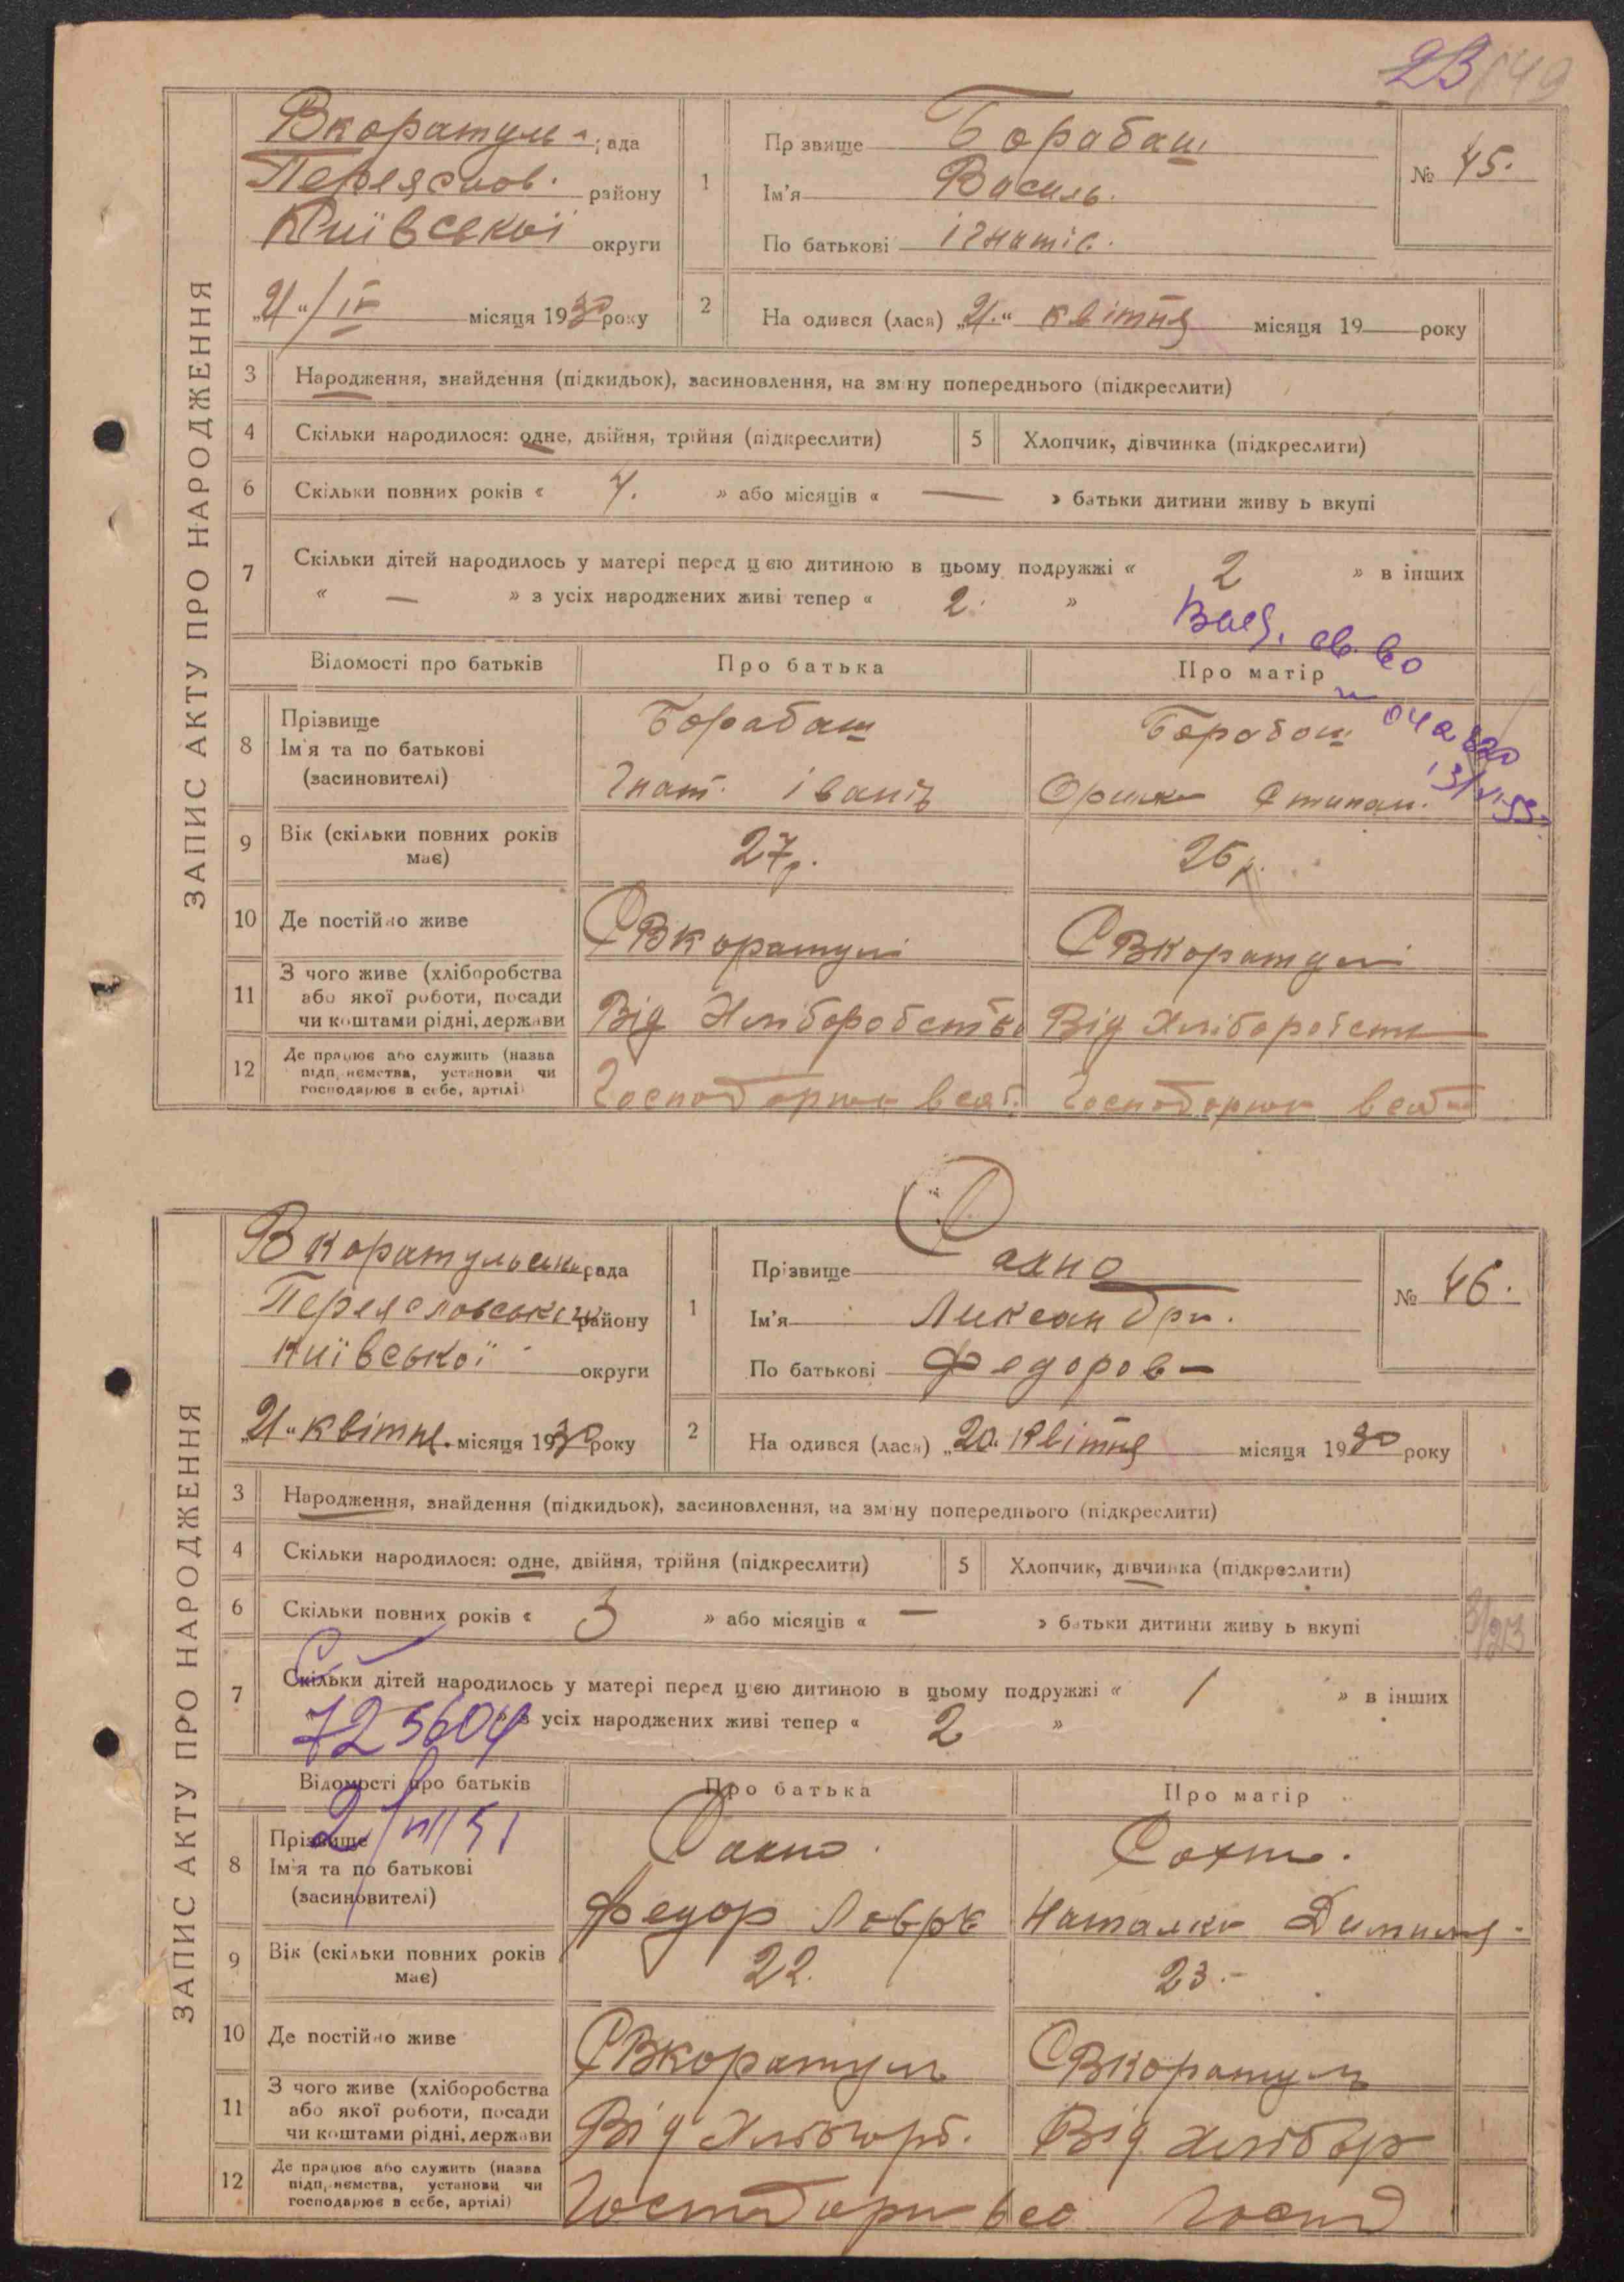 23 149
ЗАПИС АКТУ ПРО НАРОДЖЕННЯ
Вкоратул рада
Переяслов. району
Київської округи
„21“/IV місяця 1930 року
1
Прізвище Борабаш
Ім'я Василь.
По батькові ігнатів.
№ 45.
2
Народився (лася) „21.“ квітня місяця 19 року
3 Народження, знайдення (підкидьок), засиновлення, на зміну попереднього (підкреслити)
4 Скільки народилося: одне, двійня, трійня (підкреслити)
5 Хлопчик, дівчинка (підкреслити)
6 Скільки повних років « 7. » або місяців « — » батьки дитини живуть вкупі
7 Скільки дітей народилось у матері перед цією дитиною в цьому подружжі « 2 » в інших
« — » з усіх народжених живі тепер « 2. »
Відомості про батьків Про батька Про матір
8 Прізвище
Ім'я та по батькові
(засиновителі)
Борабаш
Гнат. іваніч
Борабаш
Оришка Степан.
9 Вік (скільки повних років має)
27р.
26р.
10 Де постійно живе
С Вкоратулі
С Вкоратулі
11 З чого живе (хліборобства
або якої роботи, посади
чи коштами рідні, держави
Від Хліборобства
Від Хліборобств
12 Де працює або служить (назва
підприємства, установи чи
господарює в себе, артілі)
Господорює в себ.
Господорює в себе
ЗАПИС АКТУ ПРО НАРОДЖЕННЯ
Вкоратульська рада
Переясловського району
Київської округи
„21“ квітня. місяця 1930 року
1
Прізвище Сахно
Ім'я Ликсандри.
По батькові Федоров
№ 46.
2
Народився (лася) „20.“ Квітня місяця 1930 року
3 Народження, знайдення (підкидьок), засиновлення, на зміну попереднього (підкреслити)
4 Скільки народилося: одне, двійня, трійня (підкреслити)
5 Хлопчик, дівчинка (підкреслити)
6 Скільки повних років « 3 » або місяців « — » батьки дитини живуть вкупі
7 Скільки дітей народилось у матері перед цією дитиною в цьому подружжі « 1 » в інших
з усіх народжених живі тепер « 2 »
Відомості про батьків Про батька Про матір
2/VIII 51
8 Прізвище
Ім'я та по батькові
(засиновителі)
Сахно.
Федор Лавр
Сахно.
Наталка
9 Вік (скільки повних років має)
22.
23.
10 Де постійно живе
С Вкоратул
С Вкоратул
11 З чого живе (хліборобства
або якої роботи, посади
чи коштами рідні, держави
Від Хлібороб.
Від хлібор
12 Де працює або служить (назва
підприємства, установи чи
господарює в себе, артілі)
Господорює в се
Господ